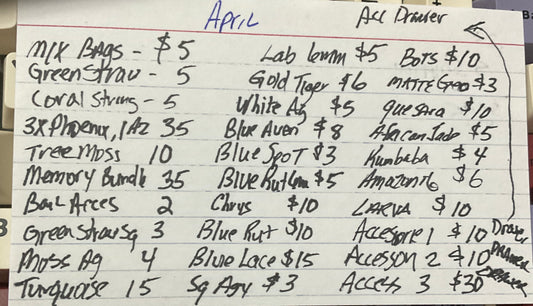 April Acc Drawer
Mix Bags - $5 Lab 6mm $5 Bots $10
Green Strau - 5 Gold Tiger $6 Matte Geo $3
Coral Strung - 5 White Ag $5 Quesara $10
3x Phoenix, 1 Az 35 Blue Aven $8 African Jade $5
Tree Moss 10 Blue Spot $3 Kambaba $4
Memory Bundle 35 Blue Rut 6mm $5 Amazon 6 $6
Bali Acces 2 Chrys $10 Larva $10
Green Strau Sq 3 Blue Rut $10 Accesore 1 $10 Drawer
Moss Ag 4 Blue Lace $15 Accesson 2 $10 Drawer
Turquoise 15 Sq Agy $3 Access 3 $30 Drawer